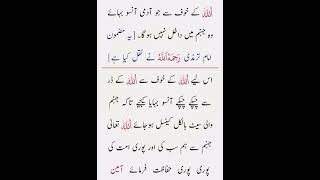 اللہ کے خوف سے جو آدمی آنسو بہائے
وہ جہنم میں داخل نہیں ہو گا۔ [یہ مضمون
امام ترمذی رَحِمَهُ اللهُ نے نقل کیا ہے]
اس لیے اللہ کے خوف سے اللہ کے ڈر
سے چپکے چپکے آنسو بہایا کیجیے تاکہ جہنم
والی سیٹ بالکل کینسل ہو جائے اللہ تعالیٰ
جہنم سے ہم سب کی اور پوری امت کی
پوری پوری حفاظت فرمائے آمین